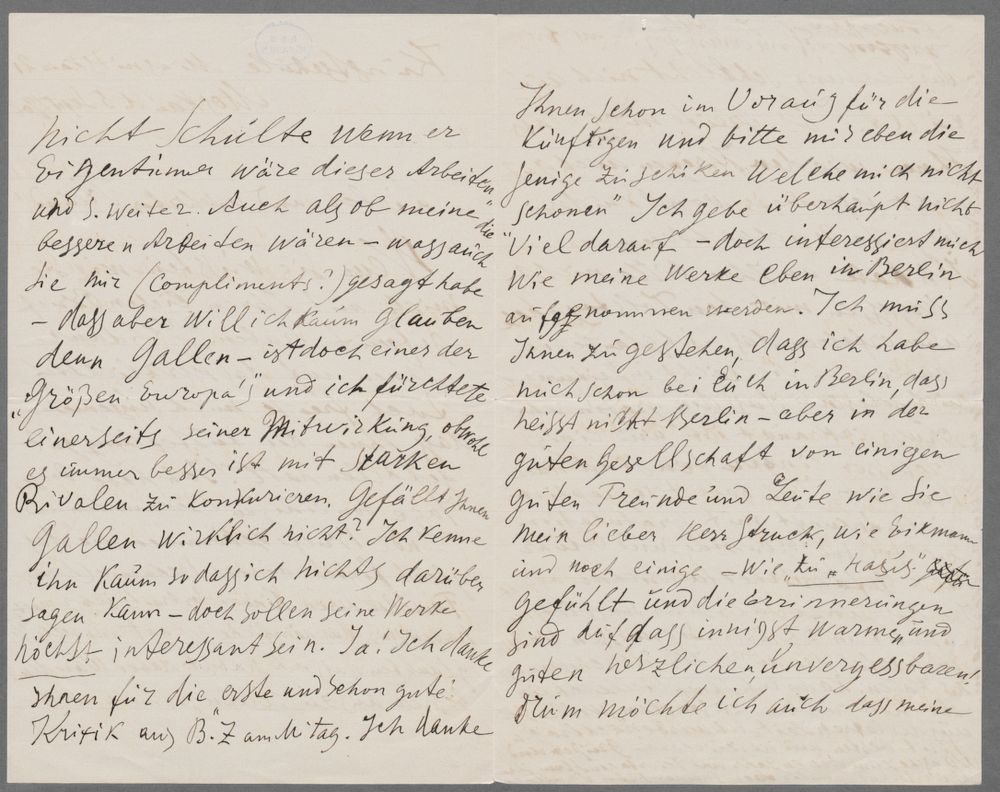 nicht Schulte wenn er
Eigentümer wäre dieser Arbeiten
und s. weiter. Auch als ob meine „die
besseren Arbeiten wären – wass auch
Sie mir (Compliments?) gesagt habe
– dass aber will ich kaum glauben
denn Gallen – ist doch einer der
„Größen Europa's“ und ich fürchtete
einerseits seiner Mitwirkung, obwohl
es immer besser ist mit starken
Rivalen zu konkurieren. Gefällt Ihnen
Gallen wirklich nicht? Ich kenne
ihn kaum so dass ich nichts darüber
sagen kann – doch sollen seine Werke
höchst interessant sein. Ja! Ich danke
Ihnen für die erste und schon gute
Kritik aus B.Z am Mitag. Ich danke
Ihnen schon im Voraus für die
Künftigen und bitte mir eben die
jenige zu schiken welche mich nicht
schonen“ Ich gebe überhaupt nicht
„Viel darauf – doch interessiert mich
wie meine Werke eben in Berlin
aufgenommen werden. Ich muss
Ihnen zugestehen, dass ich habe
mich schon bei Euch in Berlin, dass
heisst nicht Berlin – aber in der
guten Gesellschaft von einigen
guten Freunde und Leute wie Sie
mein lieber Herr Struck, wie Eikmann
und noch einige – wie „zu „Hause“
gefühlt und die Errinnerungen
sind auf dass innigst warme, und
guten herzlichen, unvergessbaren!
Drum möchte ich auch dass meine